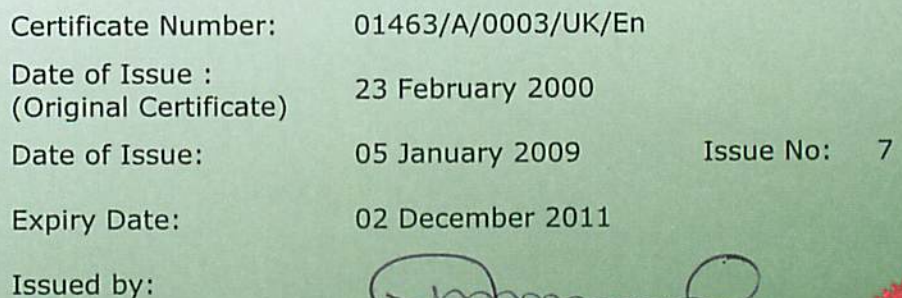 Certificate Number: 01463/A/0003/UK/En
Date of Issue :
(Original Certificate) 23 February 2000
Date of Issue: 05 January 2009 Issue No: 7
Expiry Date: 02 December 2011
Issued by: